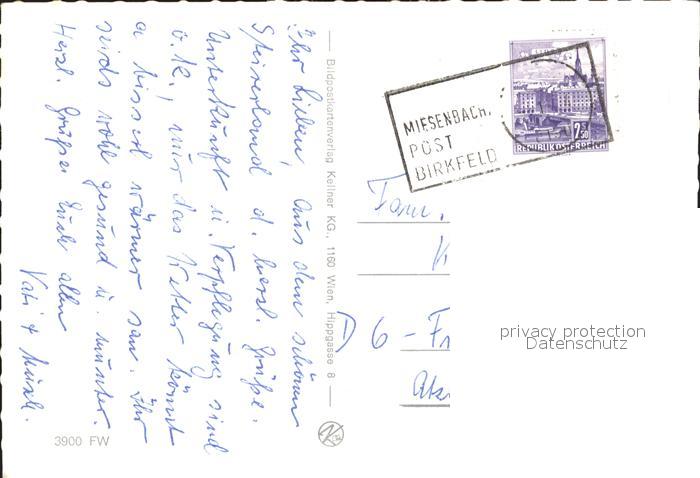 Ihr Lieben, aus dem schönen
Steirerland d. herzl. Grüße.
Unterkunft u. Verpflegung sind
o.k., nur das Wetter könnt
a bissel wärmer san. Ihr
seids wohl gesund u. munter.
Herzl. Grüße Euch allen
Vati +
3900 FW
Bildpostkartenverlag Kellner KG., 1160 Wien, Hippgasse 8
MIESENBACH,
POST
BIRKFELD
2.50
REPUBLIK ÖSTERREICH
Fam.
K
D 6 - Fr
privacy protection
Datenschutz